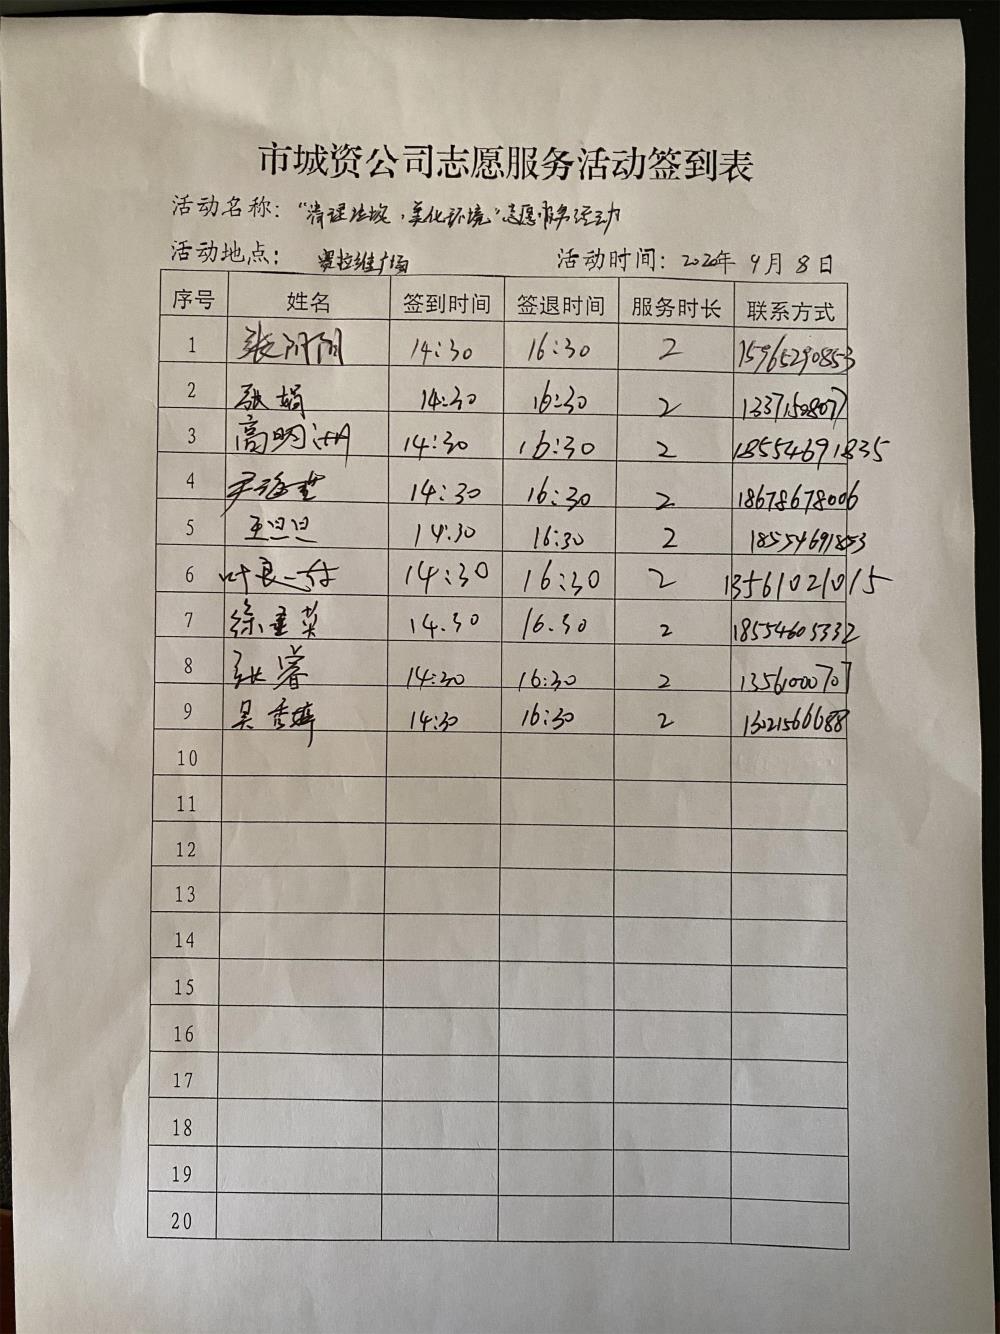 市城资公司志愿服务活动签到表
活动名称：“清理垃圾，美化环境”志愿服务活动
活动地点： 赛拉维广场 活动时间：2020年 9月 8日
序号 姓名 签到时间 签退时间 服务时长 联系方式
1 张阴阴 14:30 16:30 2 15965290853
2 张娟 14:30 16:30 2 13371528077
3 高明洲 14:30 16:30 2 18554691835
4 尹海 14:30 16:30 2 18678678006
5 王旦旦 14:30 16:30 2 18554691853
6 叶良 14:30 16:30 2 13561021015
7 徐奎英 14.30 16.30 2 18554605332
8 张睿 14:30 16:30 2 13561000707
9 吴秀婷 14:30 16:30 2 13021566688
10
11
12
13
14
15
16
17
18
19
20